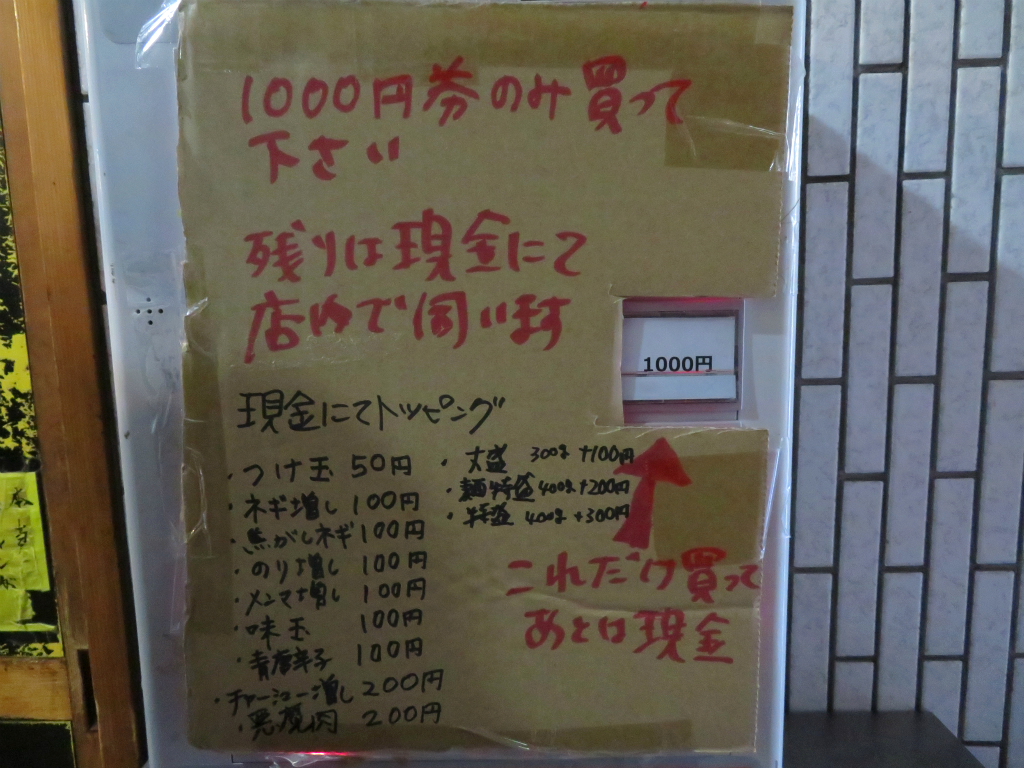 1000円券のみ買って
下さい
残りは現金にて
店内で伺います
1000円
現金にてトッピング
・つけ玉 50円
・ネギ増し 100円
・焦がしネギ 100円
・のり増し 100円
・メンマ増し 100円
・味玉 100円
・青唐辛子 100円
・チャーシュー増し 200円
・悪魔肉 200円
・大盛 300g +100円
・麺特盛 400g +200円
・特盛 400g +300円
これだけ買って
あとは現金